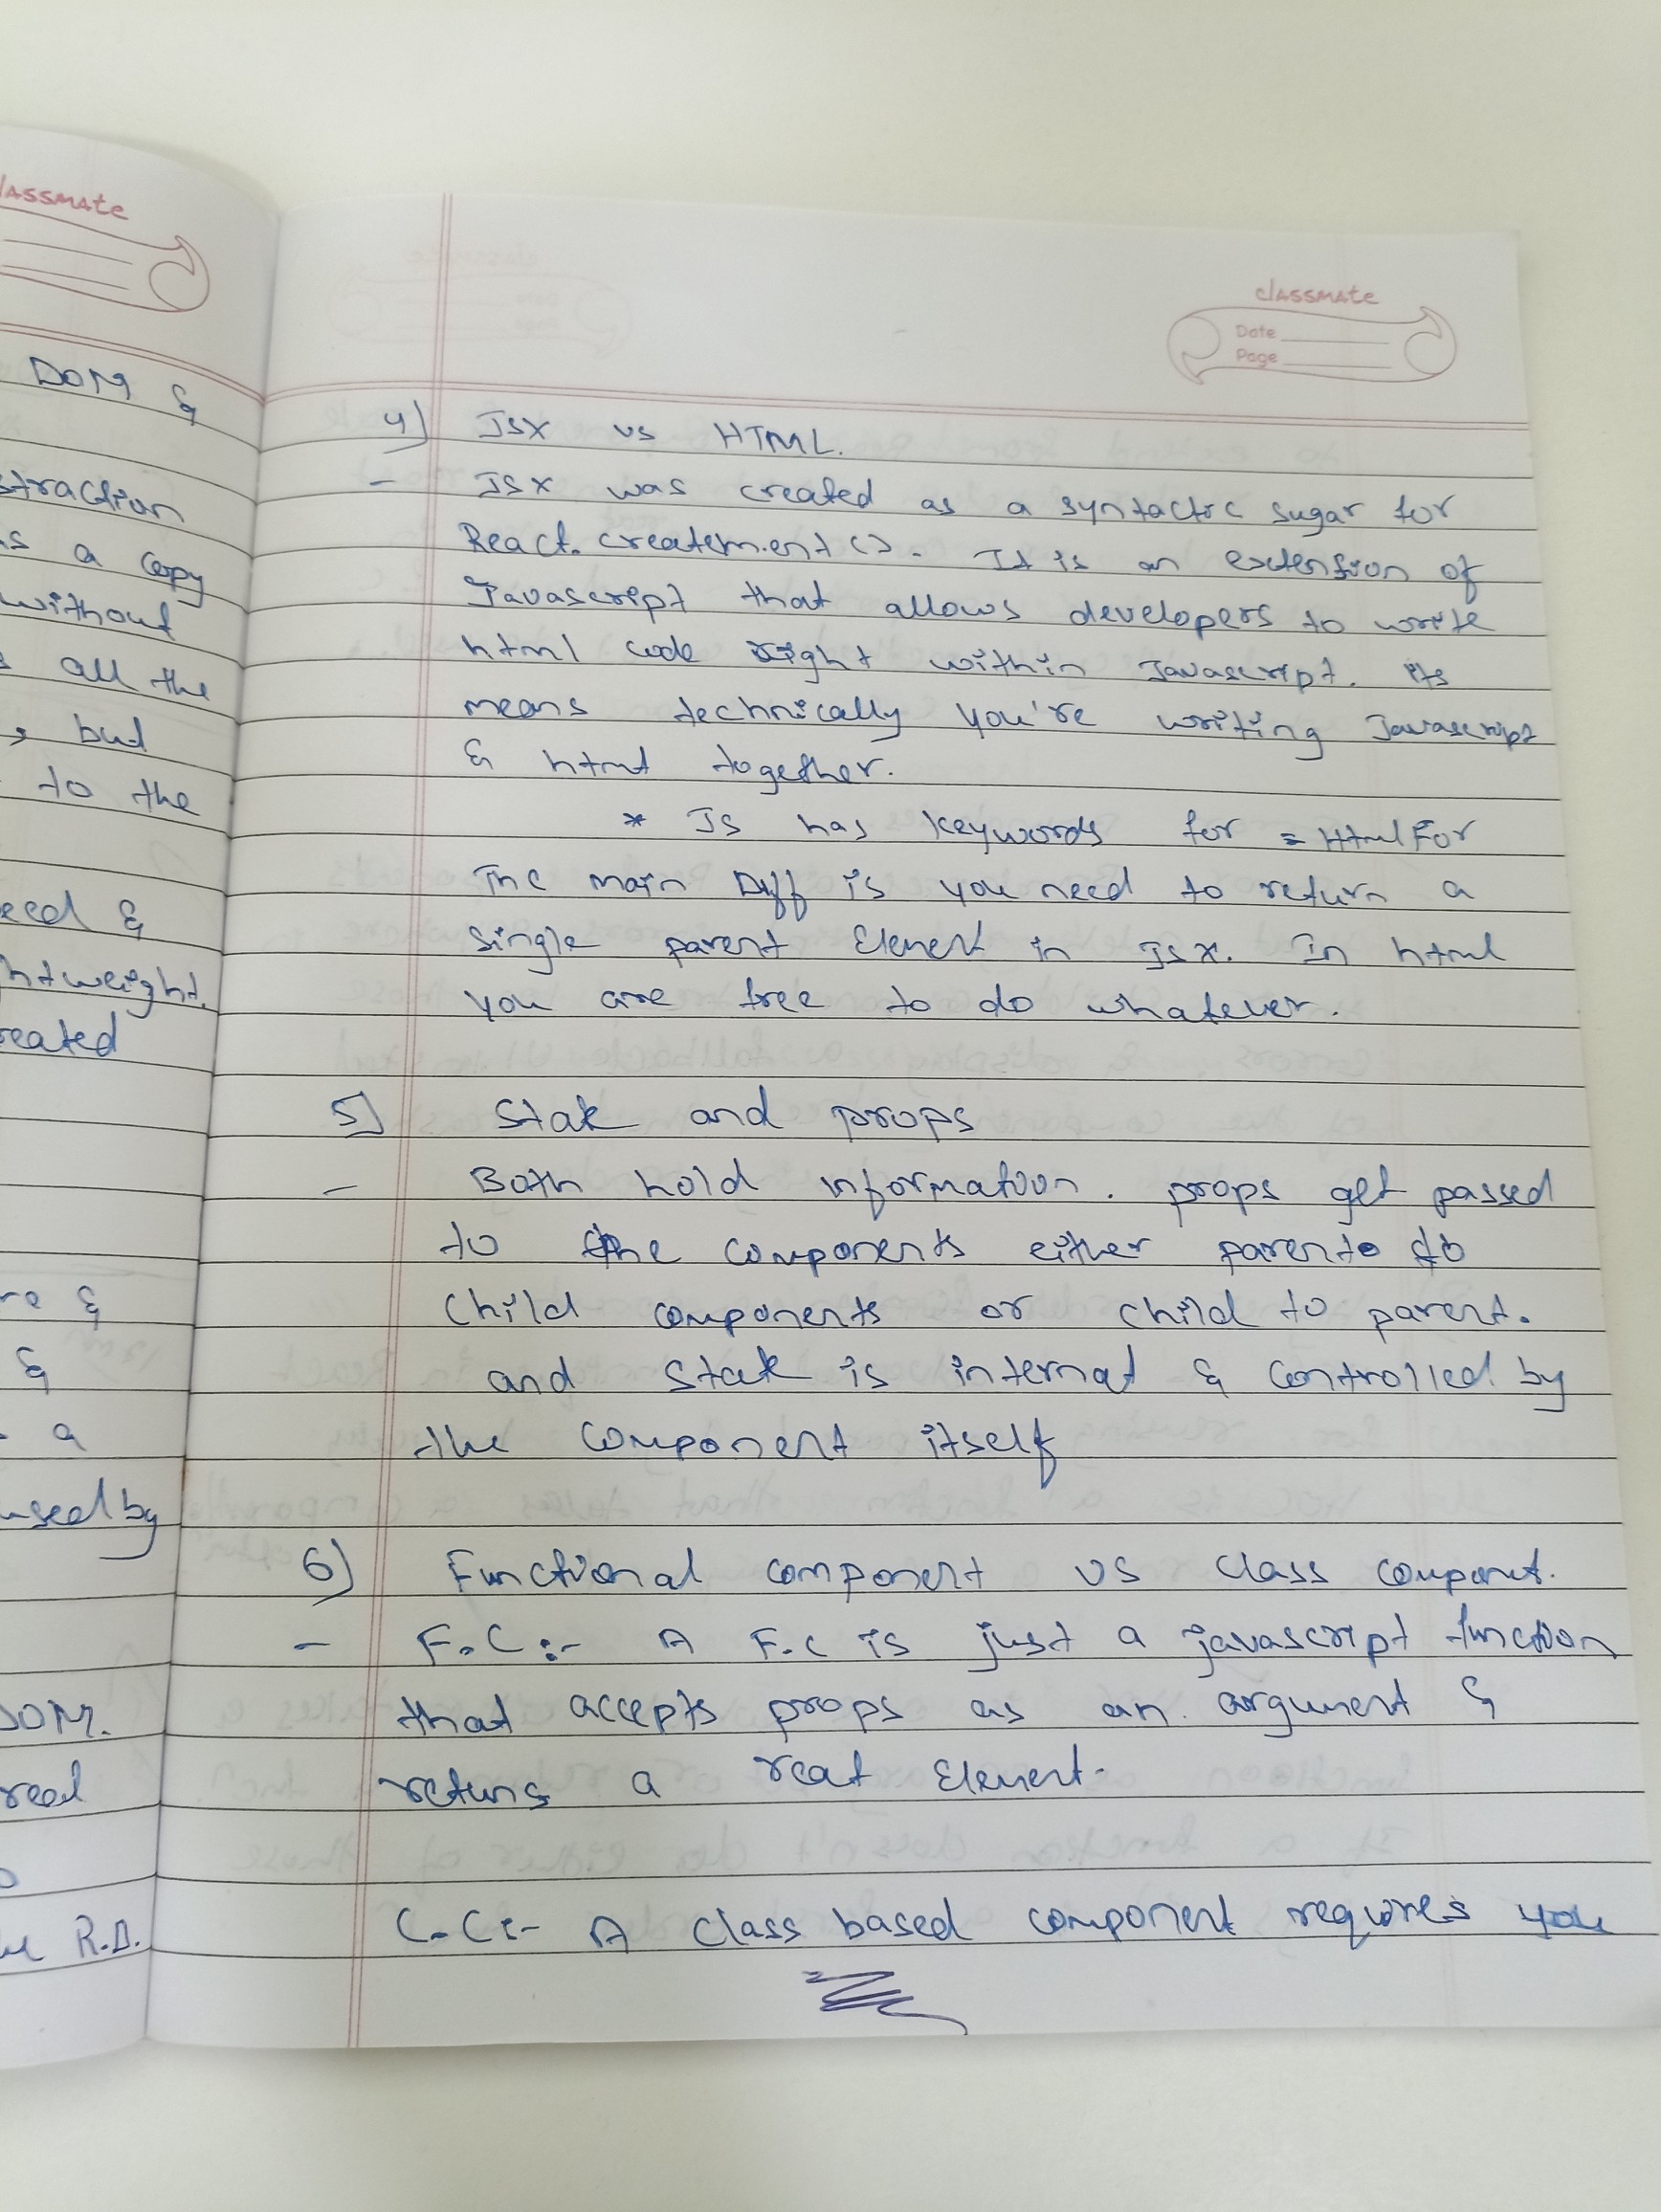 lassmate
DOM &
straction
as a copy
without
all the
, but
to the
eed &
htweight.
reated
re &
&
a
used by
DOM.
real
R.D.
classmate
Date
Page
4) JSX vs HTML.
- JSX was created as a syntactic sugar for
React. createm.ent (). It is an extension of
Javascript that allows developers to write
html code right within Javascript. Its
means technically you're writing Javascript
& html together.
* JS has keywords for = HtmlFor
The main Diff is you need to return a
single parent Element in JSX. In html
you are free to do whatever.
5) State and props
- Both hold information. props get passed
to the components either parent to
child components or child to parent.
and state is internal & controlled by
the component itself
6) Functional component vs class component.
- F.C:- A F.C is just a javascript function
that accepts props as an argument &
returns a reat Element.
C.C:- A class based component requires you